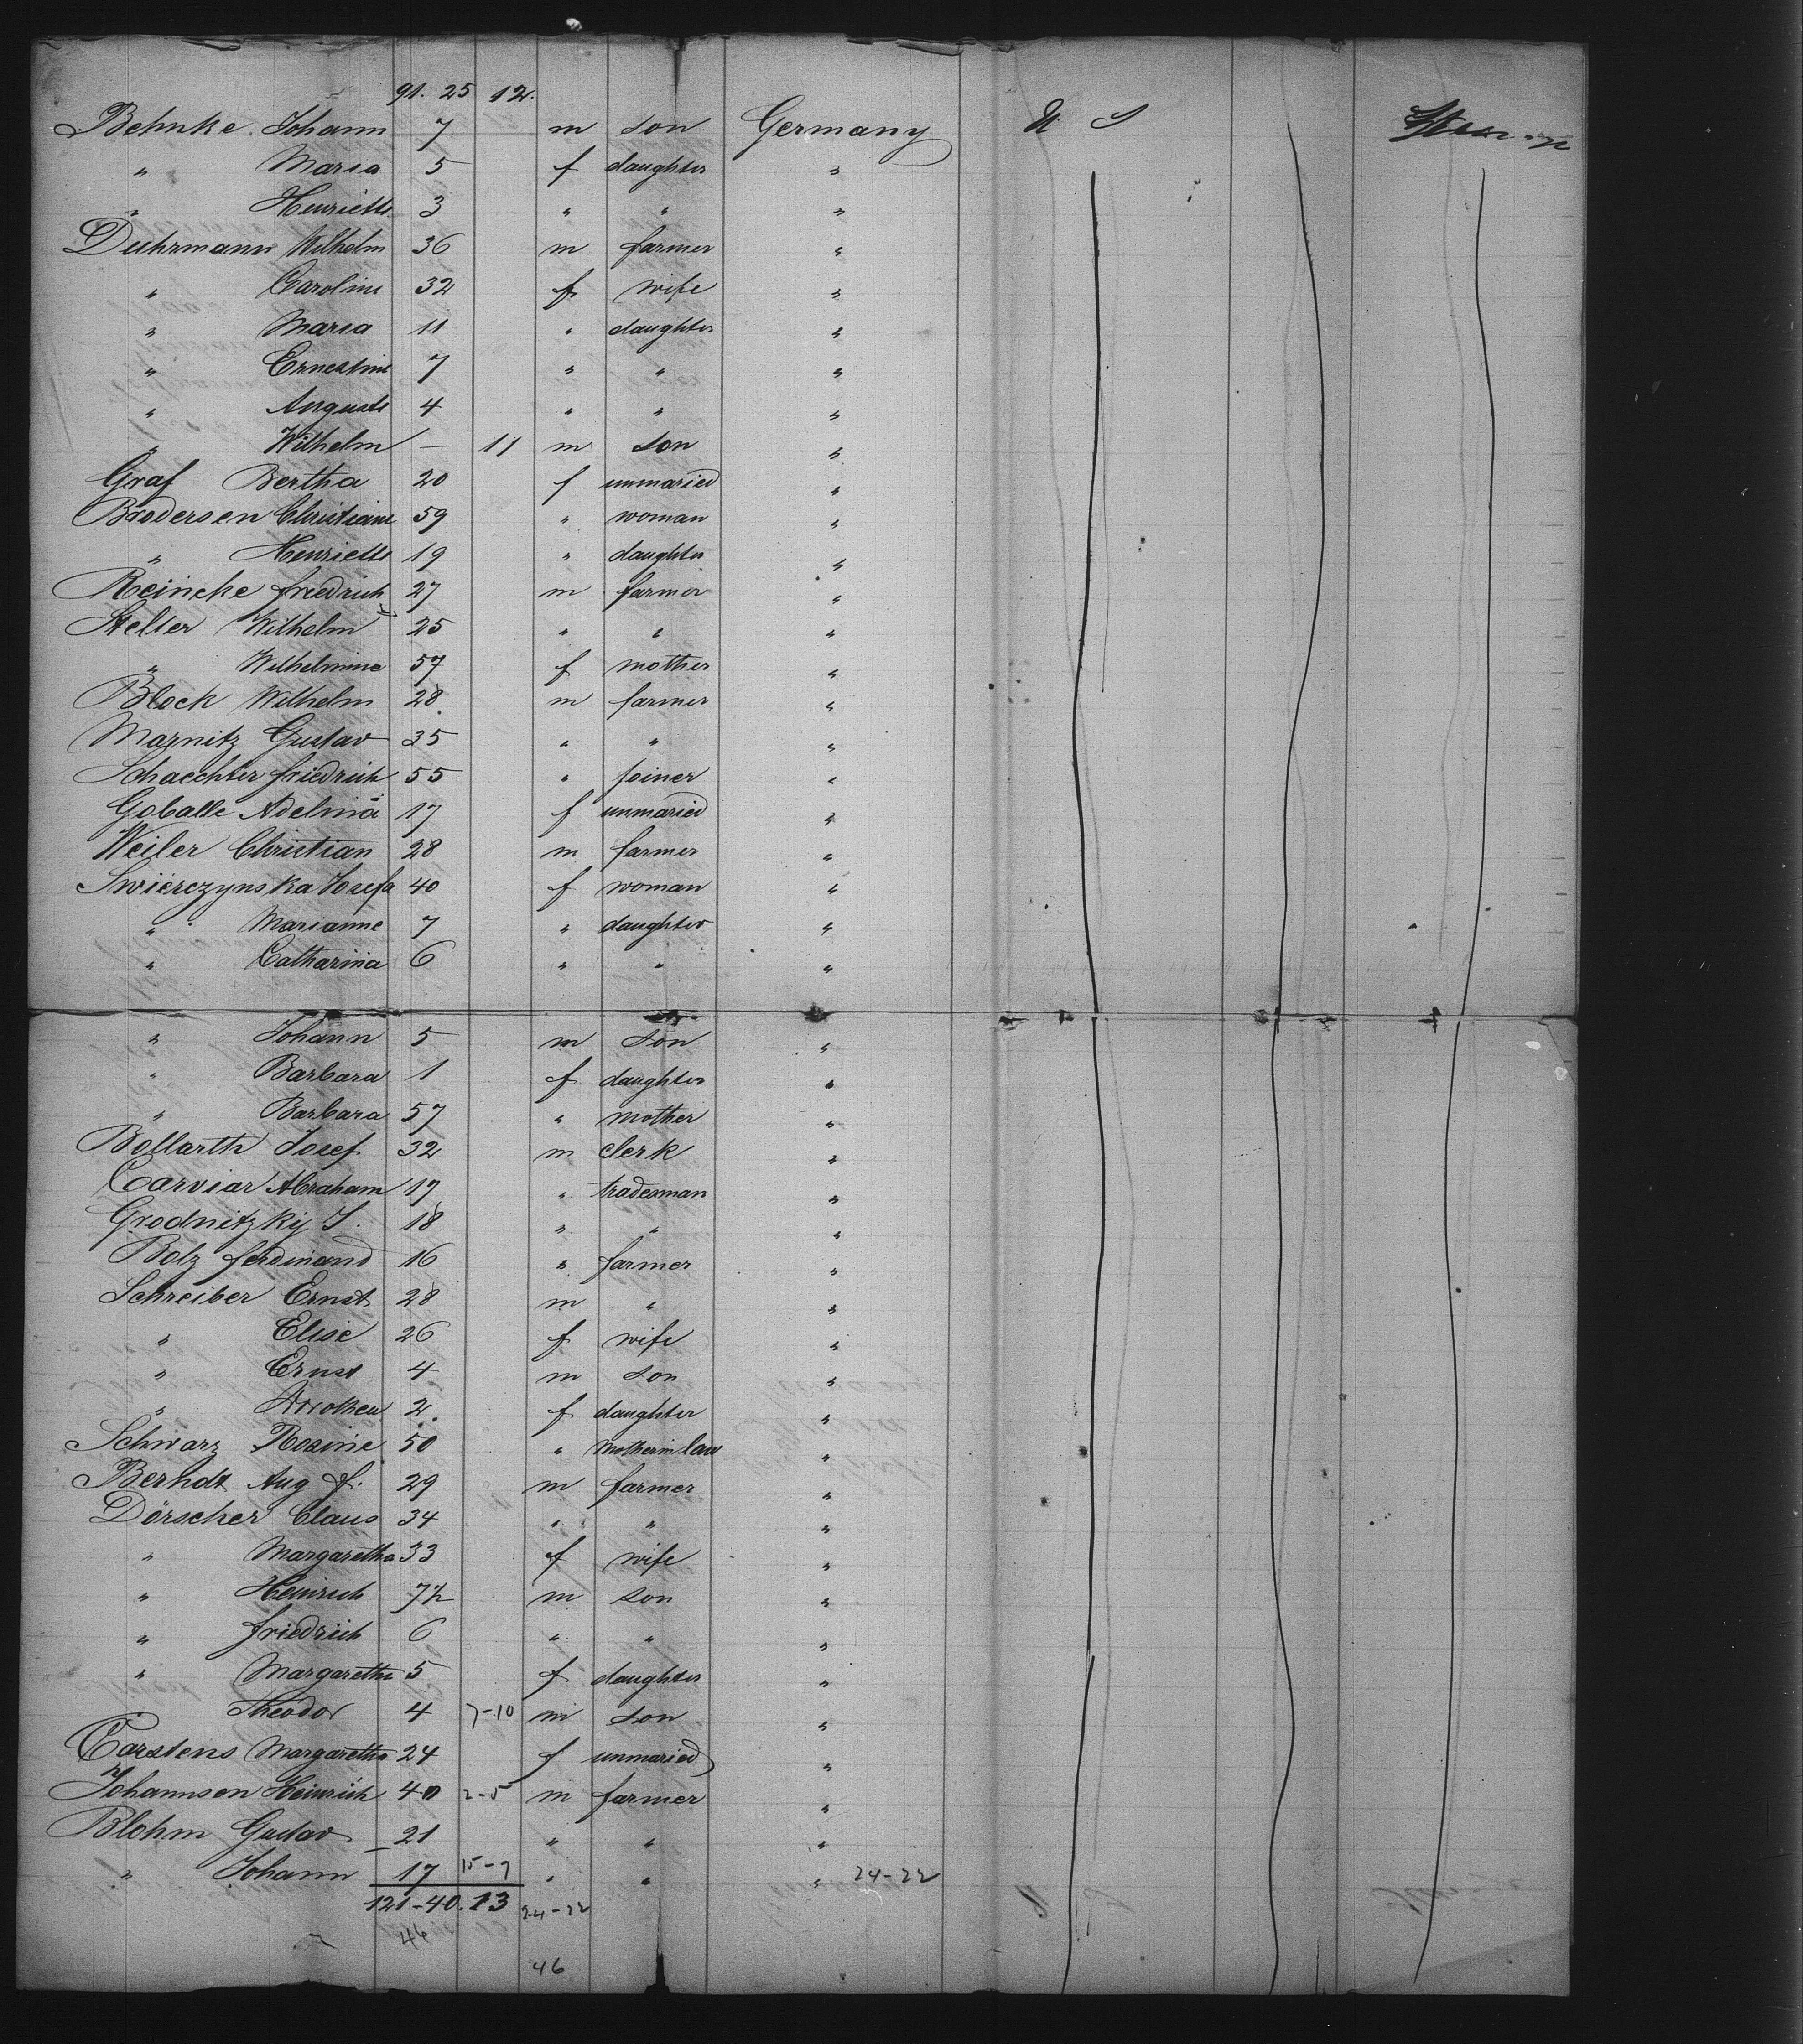 91. 25 12.
Behnke Johann 7 m son Germany U S
" Maria 5 f daughter "
" Henriette 3 " " "
Duhrmann Wilhelm 36 m farmer "
" Caroline 32 f wife "
" Maria 11 " daughter "
" Ernestine 7 " " "
" Auguste 4 " " "
" Wilhelm – 11 m son "
Graf Bertha 20 f unmaried "
Brodersen Christiane 59 " woman "
" Henriette 19 " daughter "
Reincke Friedrich 27 m farmer "
Stelter Wilhelm 25 " " "
" Wilhelmine 57 f mother "
Block Wilhelm 28 m farmer "
Marnitz Gustav 35 " " "
Schaechter Friedrich 55 " joiner "
Goballe Adelina 17 f unmaried "
Weiler Christian 28 m farmer "
Swierczynska Josefa 40 f woman "
" Marianne 7 " daughter "
" Catharina 6 " " "
" Johann 5 m son "
" Barbara 1 f daughter "
" Barbara 57 " mother "
Bollarth Josef 32 m clerk "
Carviar Abraham 17 " tradesman "
Grodnitzkij J. 18 " " "
Bolz Ferdinand 16 " farmer "
Schreiber Ernst 28 m " "
" Elise 26 f wife "
" Ernst 4 m son "
" Dorothea 2 f daughter "
Schwarz Rosine 50 " mother in law "
Berndt Aug F. 29 m farmer "
Dörscher Claus 34 " " "
" Margaretha 33 f wife "
" Heinrich 7½ m son "
" Friedrich 6 " " "
" Margaretha 5 f daughter "
Theodor 4 7-10 m son "
Carstens Margaretha 24 f unmaried "
Johannsen Heinrich 40 2-5 m farmer "
Blohm Gustav 21 " " "
" Johann 17 15-7 " " " 24-22
121-40.13 24-22
46
46